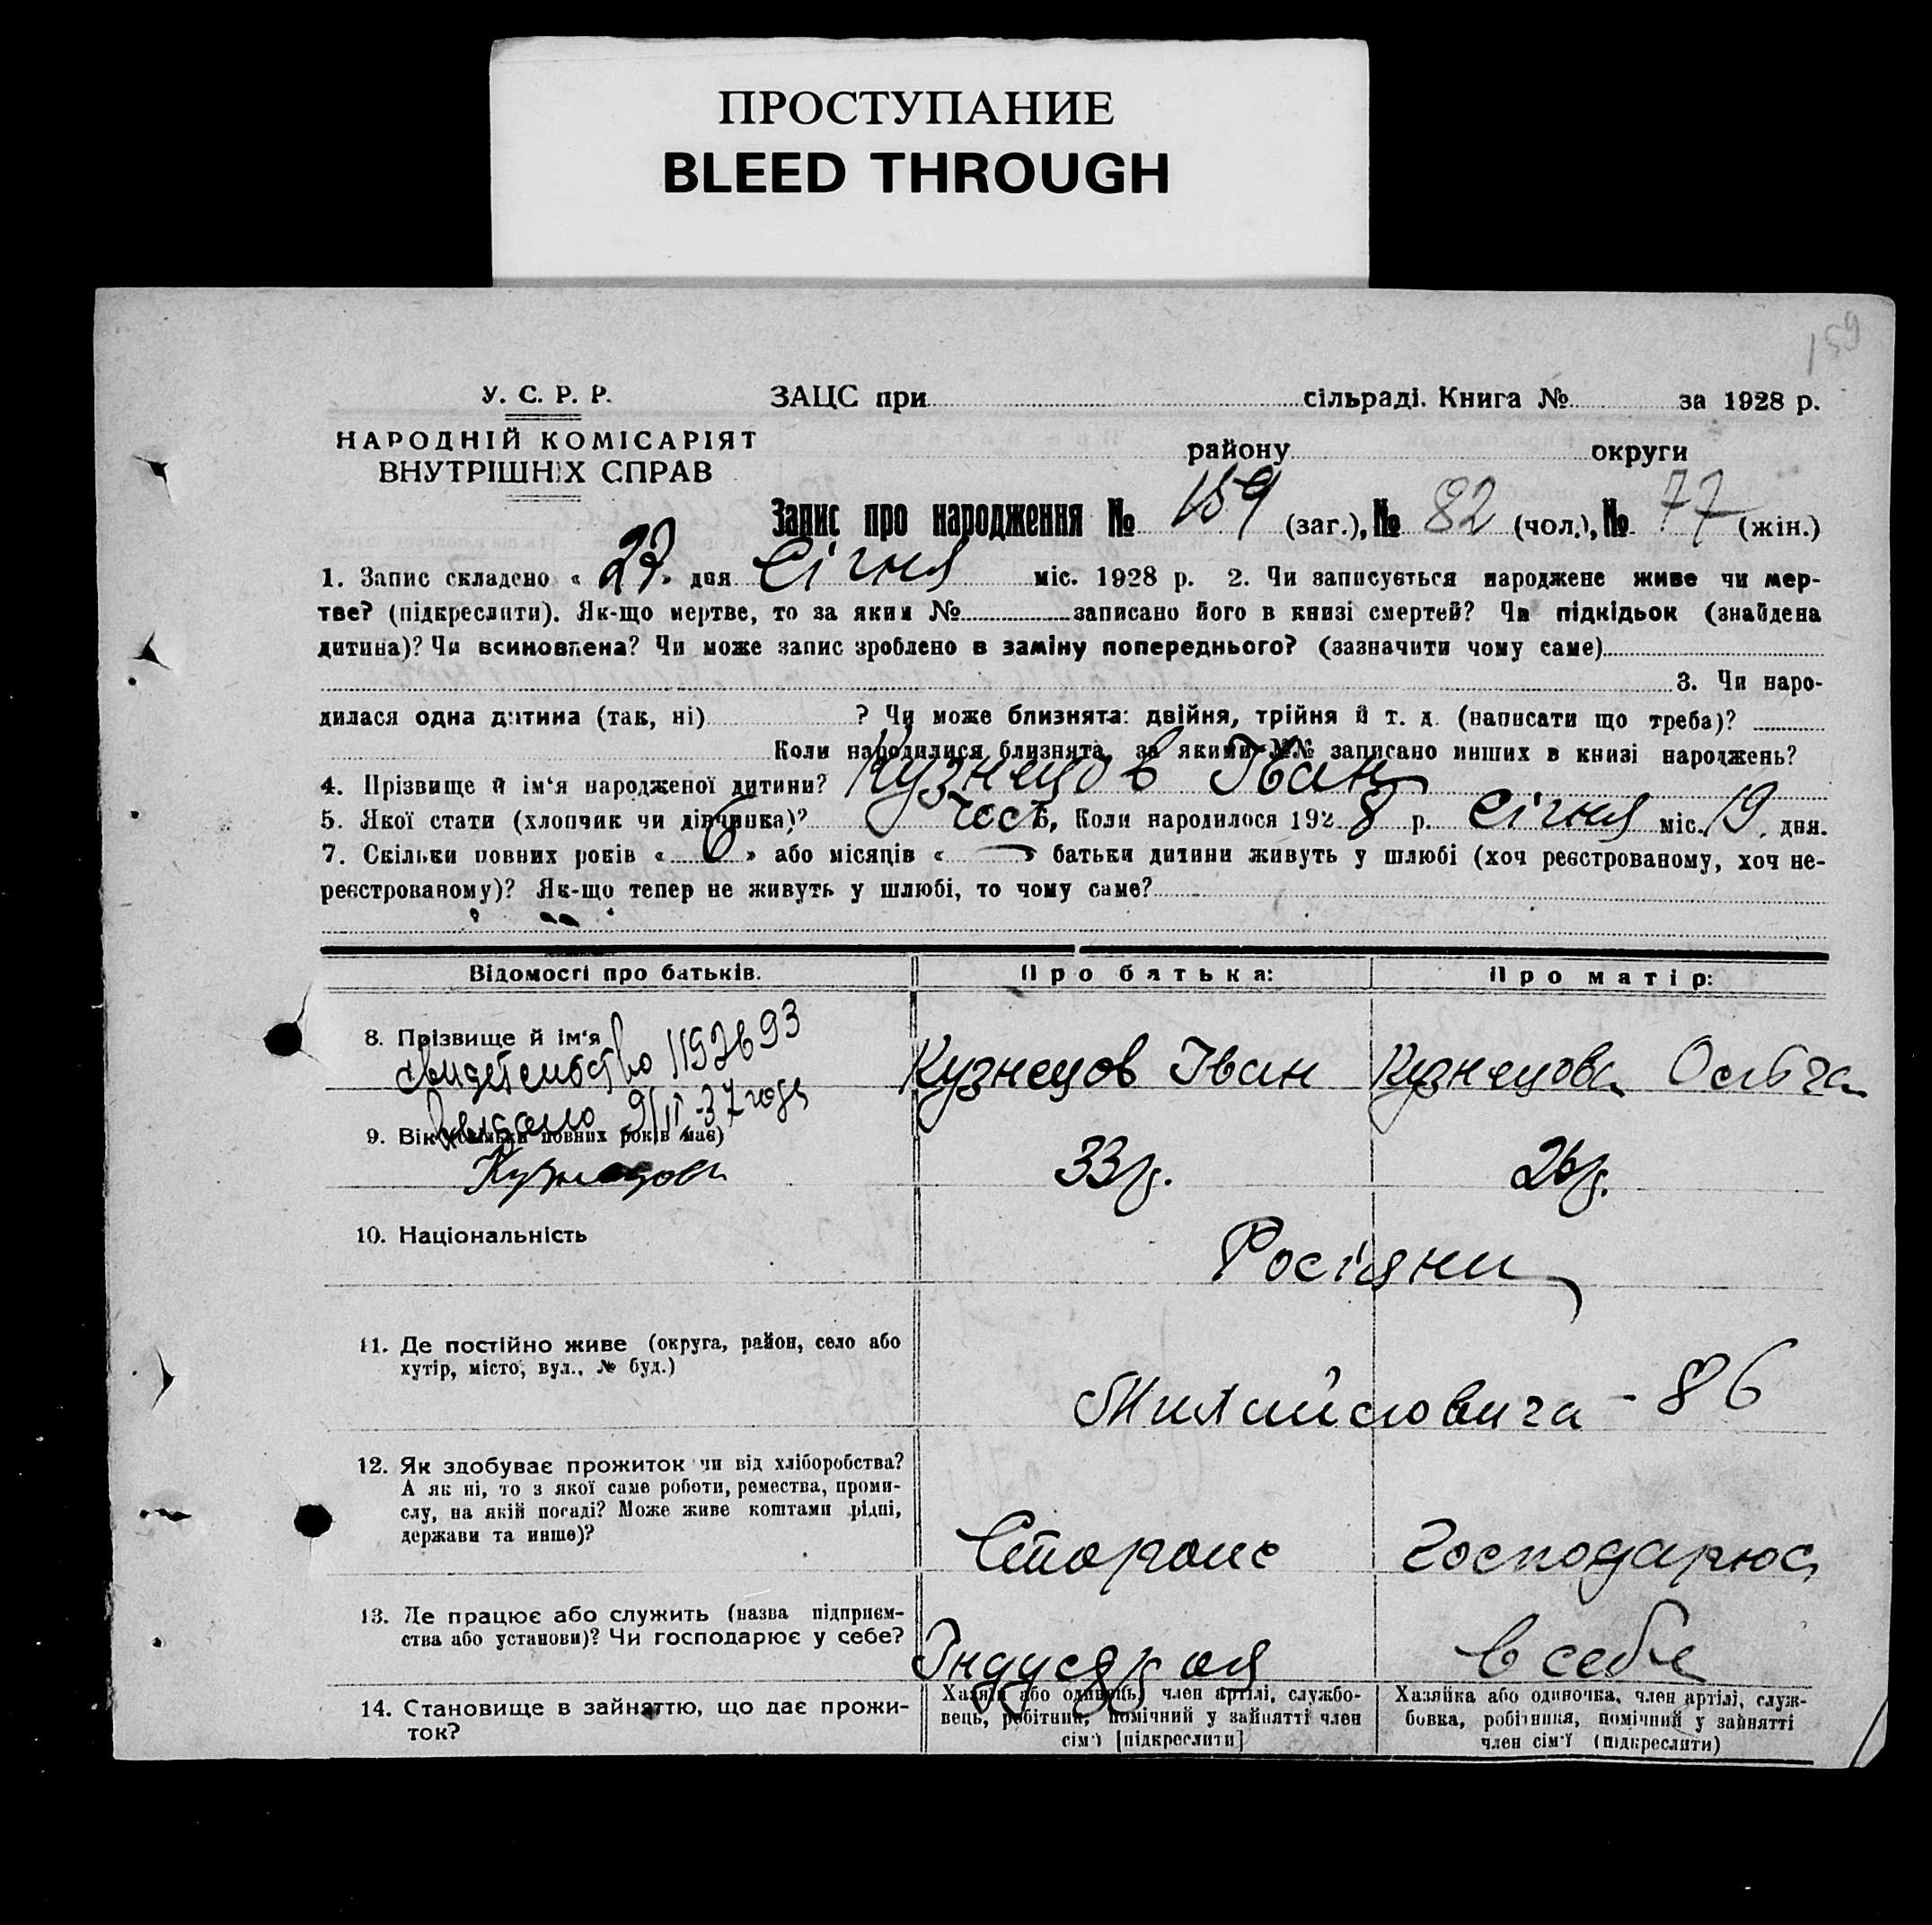 ПРОСТУПАНИЕ
BLEED THROUGH
159
У. С. Р. Р.
НАРОДНІЙ КОМІСАРІЯТ
ВНУТРІШНІХ СПРАВ
ЗАЦС при сільраді. Книга № за 1928 р.
району округи
Запис про народження № 159 (заг.), № 82 (чол.), № 77 (жін.)
1. Запис складено « 27 » дня Січня міс. 1928 р. 2. Чи записується народжене живе чи мер-
тве? (підкреслити). Як-що мертве, то за яким № записано його в книзі смертей? Чи підкідьок (знайдена
дитина)? Чи всиновлена? Чи може запис зроблено в заміну попереднього? (зазначити чому саме)
3. Чи наро-
дилася одна дитина (так, ні) ? Чи може близнята: двійня, трійня й т. д. (написати що треба)?
Коли народилися близнята, за якими №№ записано инших в книзі народжень?
4. Прізвище й ім'я народженої дитини? Кузнецов Іван
5. Якої стати (хлопчик чи дівчинка)? чол 6, Коли народилося 1928 р. Січня міс. 19 дня.
7. Скільки повних років « 6 » або місяців « — » батьки дитини живуть у шлюбі (хоч реєстрованому, хоч не-
реєстрованому)? Як-що тепер не живуть у шлюбі, то чому саме?
Відомості про батьків. Про батька: Про матір:
8. Прізвище й ім'я Кузнецов Іван Кузнецова Ольга
свидетельство 1192693
выдано 9/II-37 года
9. Вік (скільки повних років має) 33 р. 26 р.
Кузнецова
10. Національність Росіяни
11. Де постійно живе (округа, район, село або
хутір, місто, вул., № буд.)
- 86
12. Як здобуває прожиток чи від хліборобства?
А як ні, то з якої саме роботи, ремества, проми-
слу, на якій посаді? Може живе коштами рідні,
держави та инше)?
Сторож Господарює
13. Де працює або служить (назва підприєм-
ства або установи)? Чи господарює у себе?
в себе
14. Становище в зайняттю, що дає прожи-
ток?
Хазяїн або одинець, член артілі, службо-
вець, робітник, помічний у зайнятті член
сім'ї [підкреслити]
Хазяйка або одиночка, член артілі, служ-
бовка, робітниця, помічний у зайнятті
член сім'ї (підкреслити)